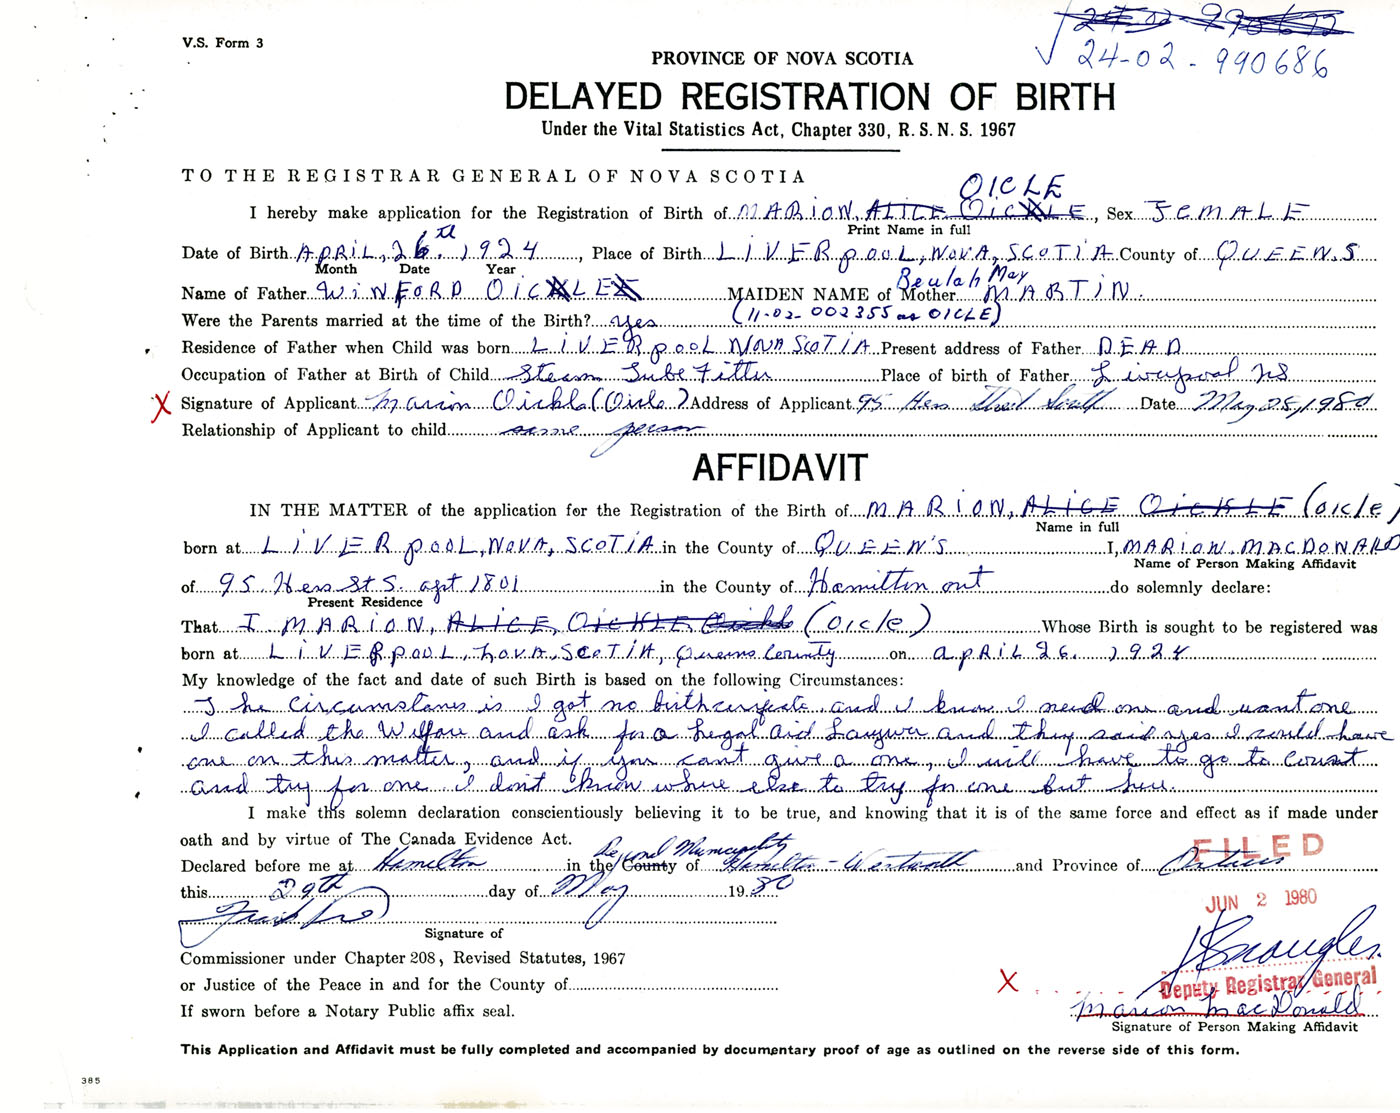 V.S. Form 3
24-02-990672
24-02-990686
PROVINCE OF NOVA SCOTIA
DELAYED REGISTRATION OF BIRTH
Under the Vital Statistics Act, Chapter 330, R. S. N. S. 1967
TO THE REGISTRAR GENERAL OF NOVA SCOTIA
OICLE
I hereby make application for the Registration of Birth of MARION, ALICE OICKLE, Sex FEMALE
Print Name in full
Date of Birth APRIL, 26th. 1924, Place of Birth LIVERPOOL, NOVA, SCOTIA County of QUEEN.S
Month Date Year
Beulah May
Name of Father WINFORD OICKLE MAIDEN NAME of Mother MARTIN.
Were the Parents married at the time of the Birth? yes (11-02-002355 as OICLE)
Residence of Father when Child was born LIVERPOOL NOVA SCOTIA Present address of Father DEAD
Occupation of Father at Birth of Child Steam Tube Fitter Place of birth of Father Liverpool NS
X Signature of Applicant Marion Oickle (Oicle) Address of Applicant 95 Hess Street South Date May 28, 1980
Relationship of Applicant to child same person
AFFIDAVIT
IN THE MATTER of the application for the Registration of the Birth of MARION, ALICE OICKLE (Oicle)
Name in full
born at LIVERPOOL, NOVA, SCOTIA in the County of QUEEN'S I, MARION. MACDONALD
Name of Person Making Affidavit
of 95. Hess St S. apt 1801 in the County of Hamilton ont do solemnly declare:
Present Residence
That I MARION, ALICE, OICKLE, Oickle (Oicle) Whose Birth is sought to be registered was
born at LIVERPOOL, NOVA, SCOTIA, Queens County on APRIL 26. 1924
My knowledge of the fact and date of such Birth is based on the following Circumstances:
The circumstanes is I got no birth and I know I need one and want one
I called the Welfare and ask for a Legal aid Lawyer and they said yes I could have
one on this matter, and if you cant give a one, I will have to go to Court
and try for one I don't know where else to try for one but here.
I make this solemn declaration conscientiously believing it to be true, and knowing that it is of the same force and effect as if made under
oath and by virtue of The Canada Evidence Act.
Regional Municipality
Declared before me at Hamilton in the County of Hamilton-Wentworth and Province of Ontario
FILED
this 29th day of May 1980
JUN 2 1980
Signature of
Commissioner under Chapter 208, Revised Statutes, 1967
or Justice of the Peace in and for the County of
X Deputy Registrar General
Marion MacDonald
If sworn before a Notary Public affix seal.
Signature of Person Making Affidavit
This Application and Affidavit must be fully completed and accompanied by documentary proof of age as outlined on the reverse side of this form.
385